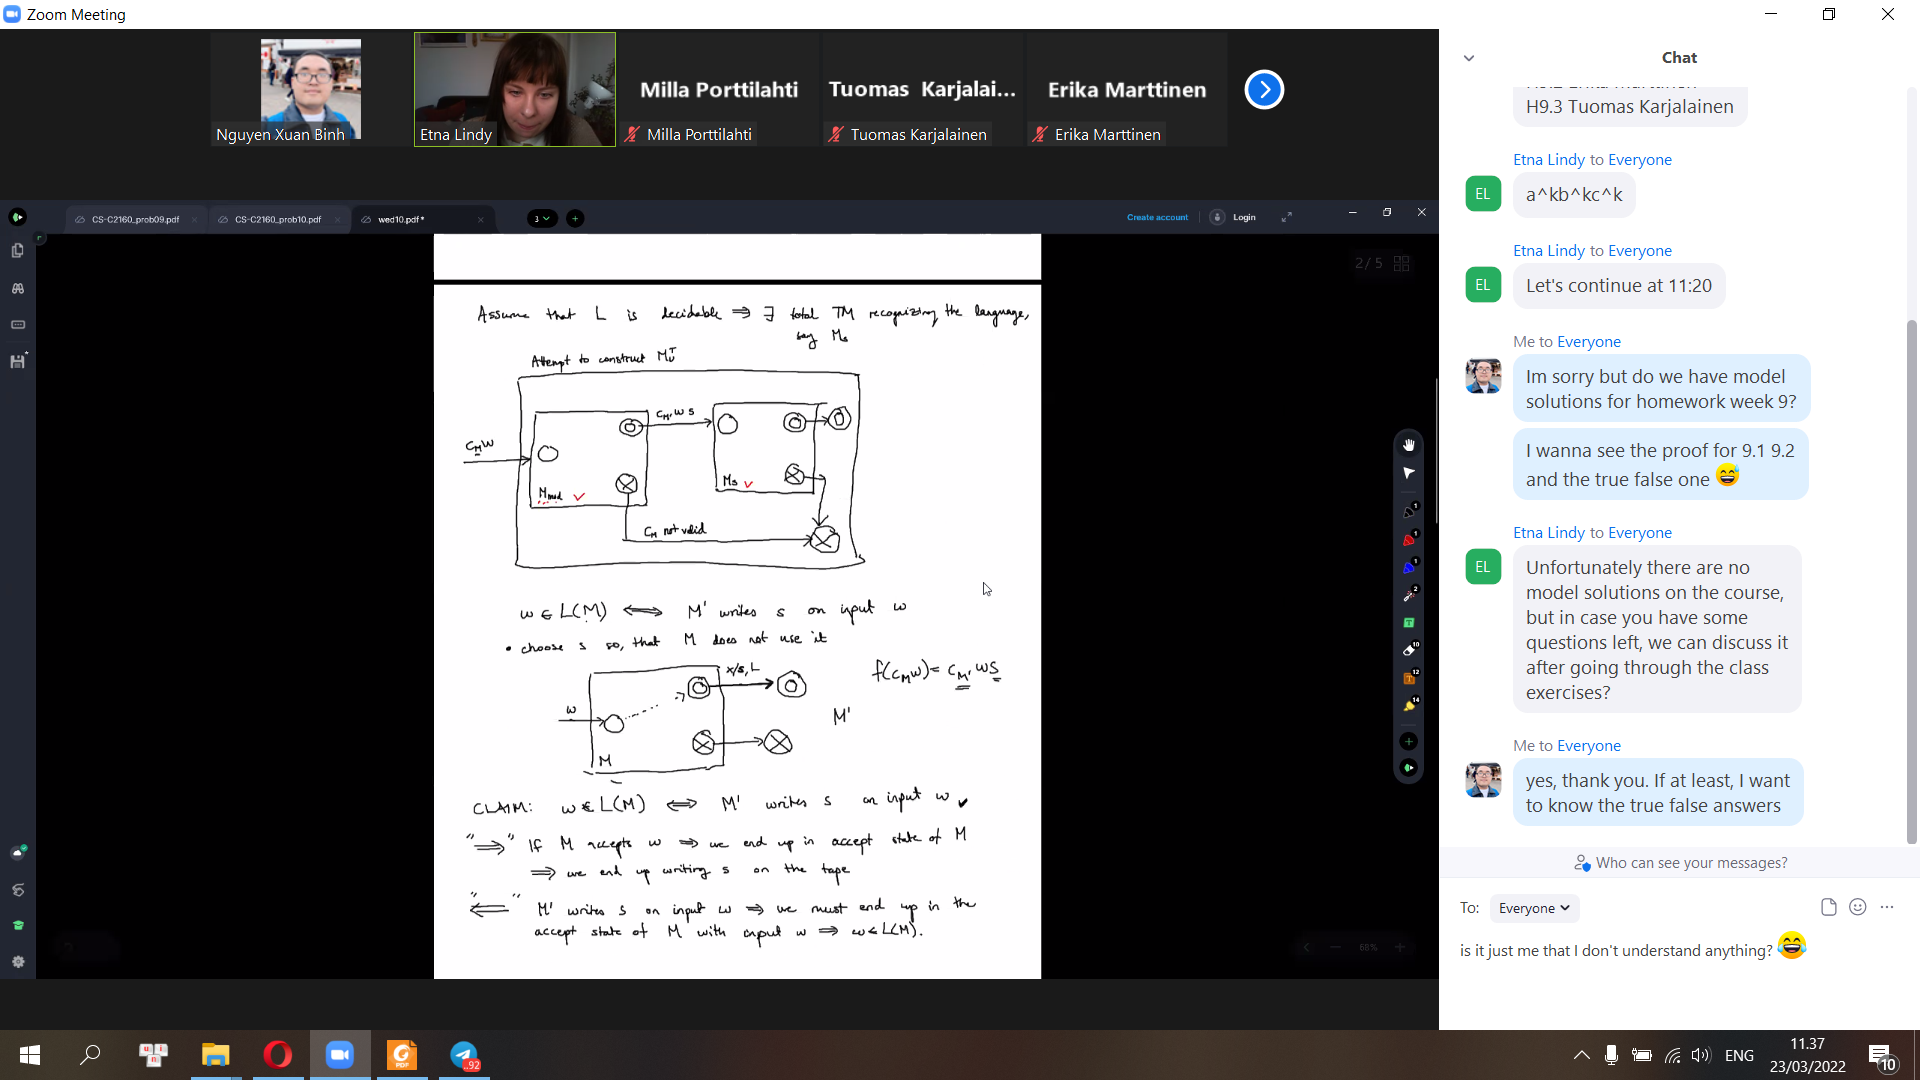 Zoom Meeting
Nguyen Xuan Binh
Etna Lindy
Milla Porttilahti
Milla Porttilahti
Tuomas Karjalai...
Tuomas Karjalainen
Erika Marttinen
Erika Marttinen
CS-C2160_prob09.pdf
CS-C2160_prob10.pdf
wed10.pdf *
3
Create account
Login
2/ 5
Assume that L is decidable ⇒ ∃ total TM recognizing the language,
say Ms
Attempt to construct M_U^T
c_M w
c_M' w s
M_mod ✓
Ms ✓
c_M not valid
w ∈ L(M) ⟺ M' writes s on input w
• choose s so, that M does not use it
x/s, L
w
M
M'
f(c_M w) = c_M' w s
CLAIM: w ∈ L(M) ⟺ M' writes s on input w ✓
"⇒" If M accepts w ⇒ we end up in accept state of M
⇒ we end up writing s on the tape
"⇐" M' writes s on input w ⇒ we must end up in the
accept state of M with input w ⇒ w ∈ L(M).
68%
Chat
H9.2 Erika Marttinen
H9.3 Tuomas Karjalainen
Etna Lindy to Everyone
EL
a^kb^kc^k
Etna Lindy to Everyone
EL
Let's continue at 11:20
Me to Everyone
Im sorry but do we have model
solutions for homework week 9?
I wanna see the proof for 9.1 9.2
and the true false one 😅
Etna Lindy to Everyone
EL
Unfortunately there are no
model solutions on the course,
but in case you have some
questions left, we can discuss it
after going through the class
exercises?
Me to Everyone
yes, thank you. If at least, I want
to know the true false answers
Who can see your messages?
To: Everyone
is it just me that I don't understand anything? 😂
92
ENG
11.37
23/03/2022
10